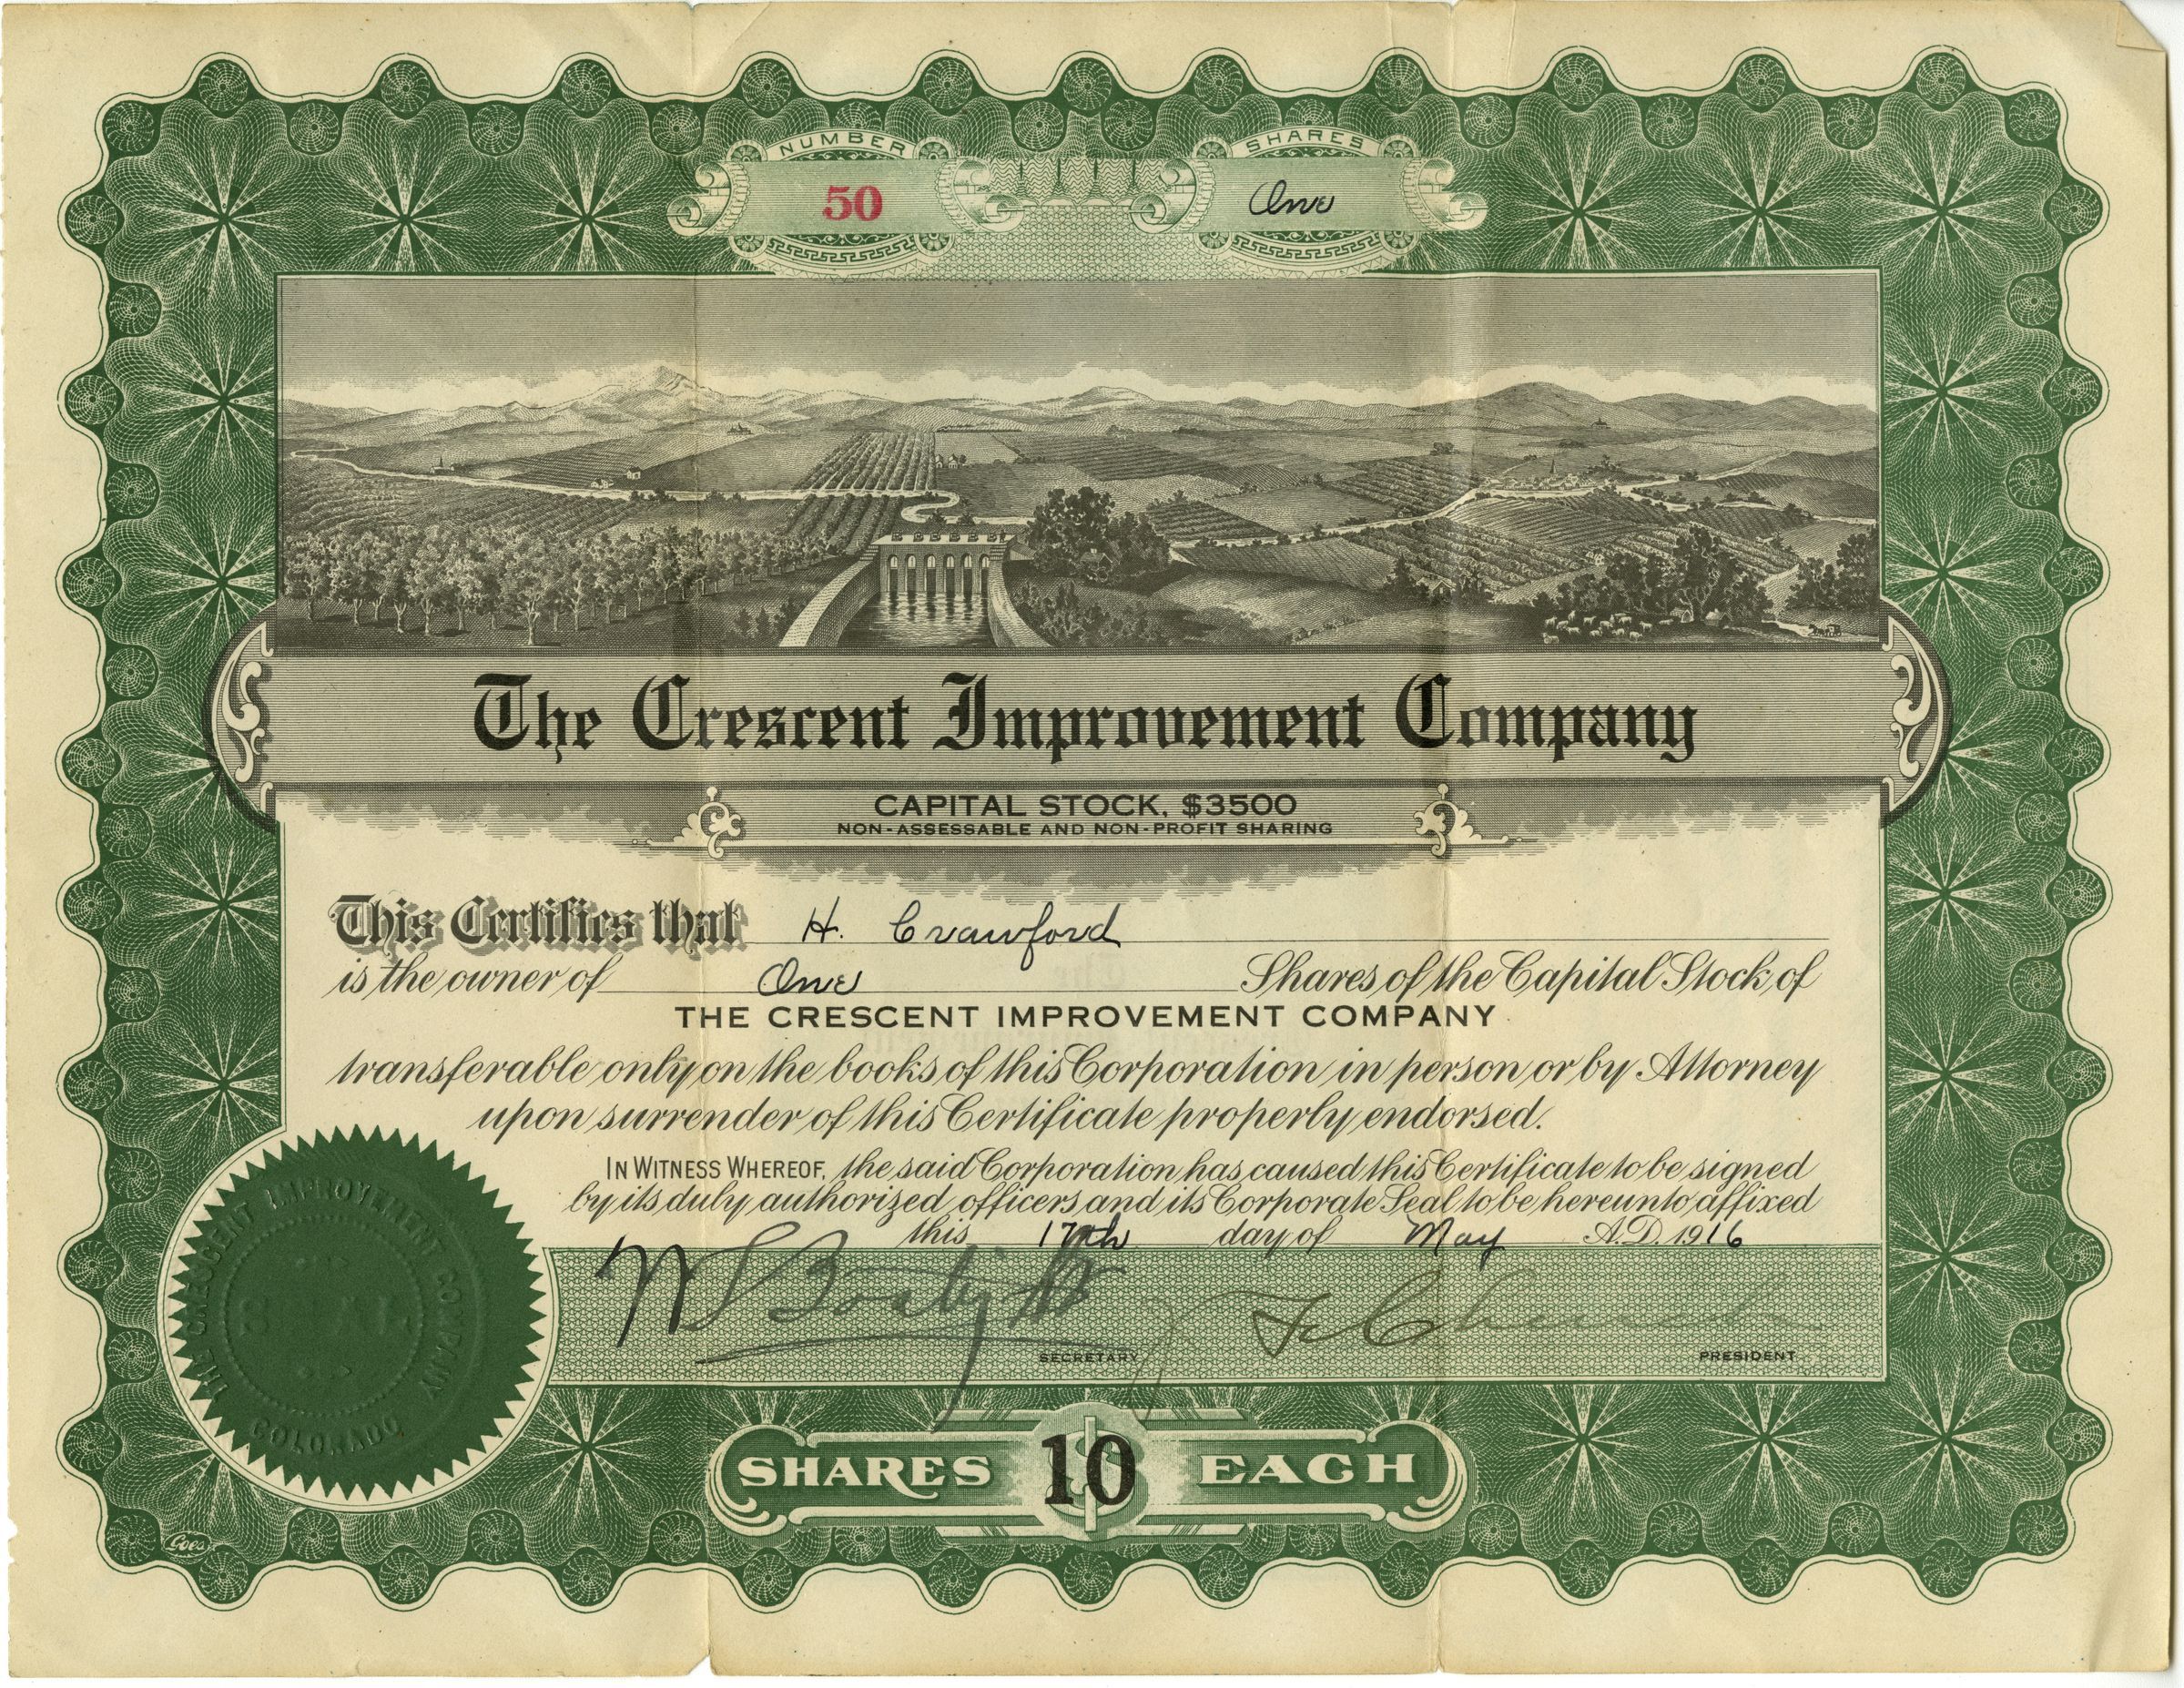 NUMBER
50
SHARES
One
The Crescent Improvement Company
CAPITAL STOCK, $3500
NON-ASSESSABLE AND NON-PROFIT SHARING
This Certifies that H. Crawford
is the owner of One Shares of the Capital Stock of
THE CRESCENT IMPROVEMENT COMPANY
transferable only on the books of this Corporation in person or by Attorney
upon surrender of this Certificate properly endorsed.
IN WITNESS WHEREOF, the said Corporation has caused this Certificate to be signed
by its duly authorized officers and its Corporate Seal to be hereunto affixed
this 17th day of May A.D. 1916
W S Boatright
SECRETARY
F C Church
PRESIDENT
THE CRESCENT IMPROVEMENT COMPANY
SEAL
COLORADO
SHARES $10 EACH
Goes